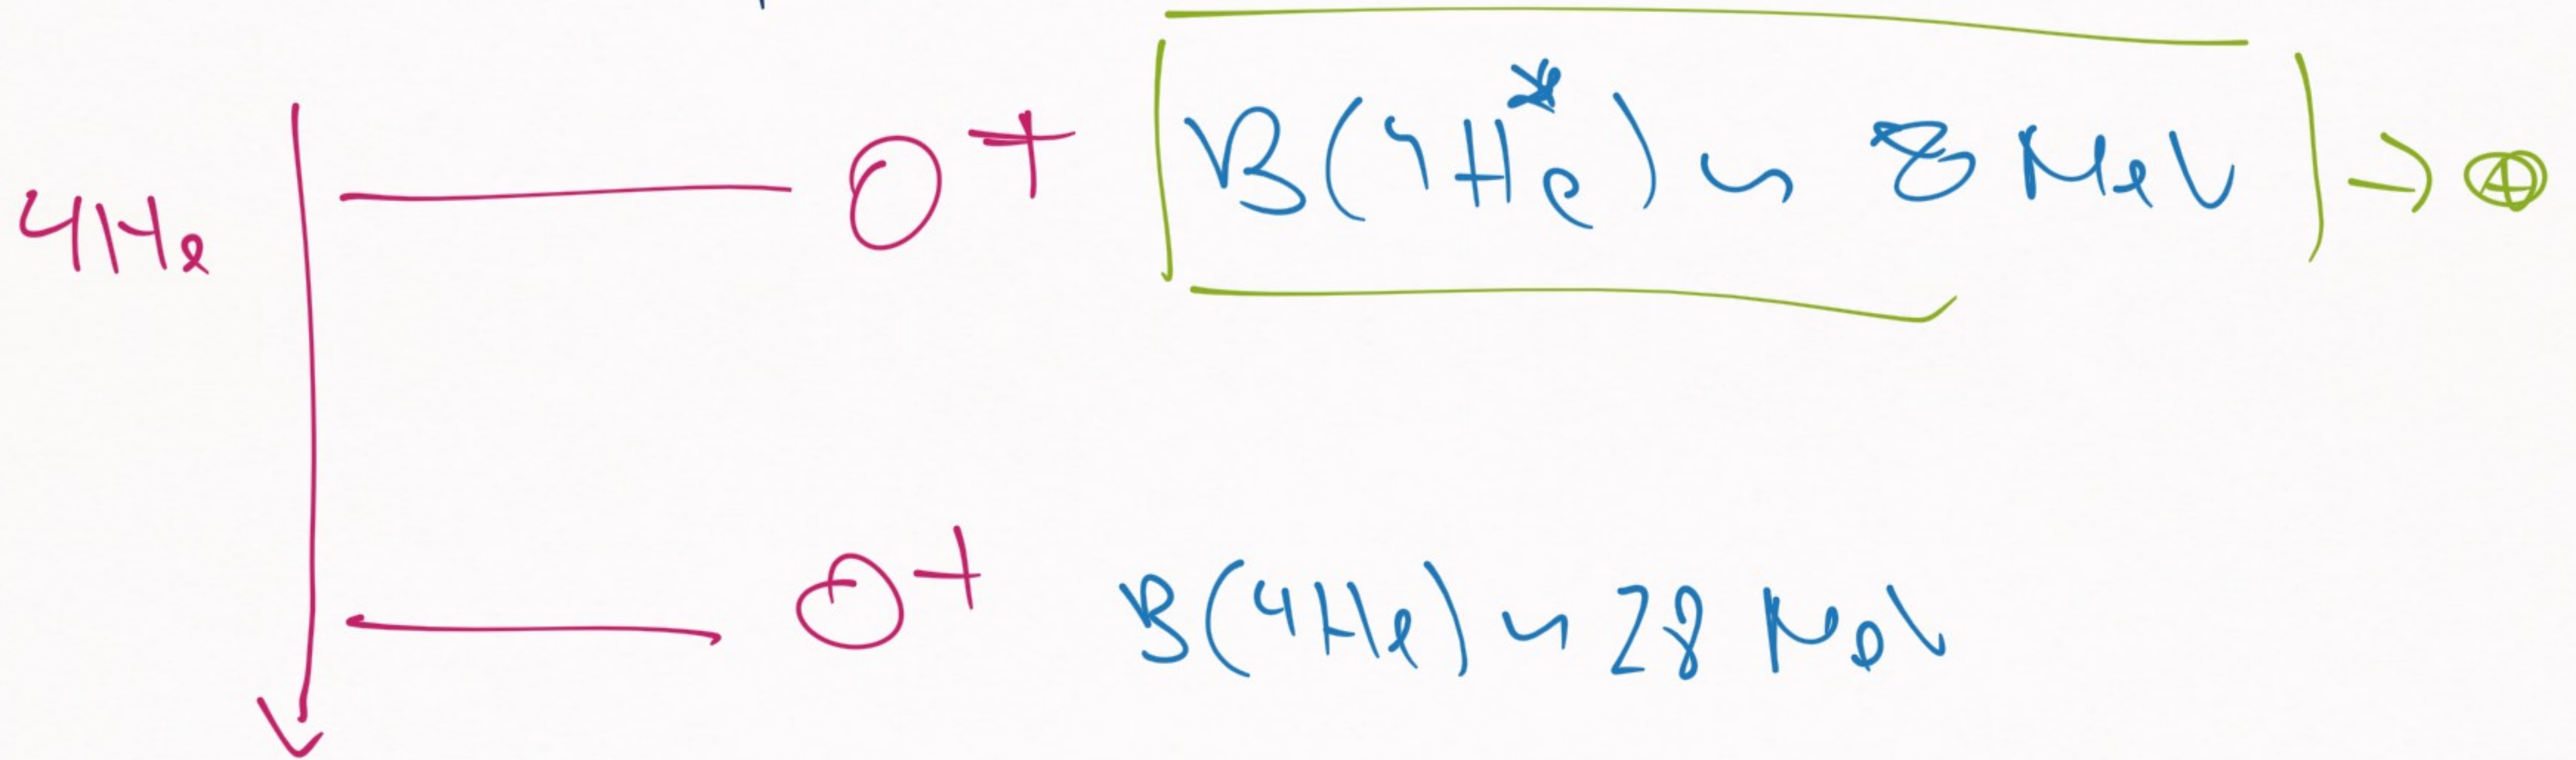 4He 0+ B(4He*) ~ 8 MeV →
0+ B(4He) ~ 28 MeV